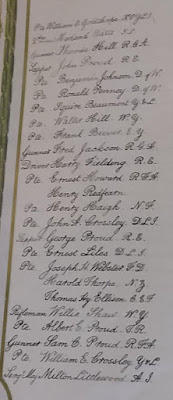 Pte William E. Goldthorpe K.O.Y.L.I.
Gunner Thomas Hill R.G.A.
Sapper John Proud R.E.
Pte Benjamin Johnson D. of W.
Pte Ronald Penney D. of W.
Pte Squire Beaumont Y & L.
Pte Walter Hill W.Y.
Pte Frank Beever E.Y.
Gunner Fred Jackson R.G.A.
Driver Harry Fielding R.E.
Pte Ernest Howard R.F.A.
Henry Redfearn
Pte Henry Haigh N.F.
Pte John A. Crossley D.L.I.
Sapper George Proud R.E.
Pte Ernest Liles D.L.I.
Pte Joseph H. Webster F.D.
Harold Thorpe N.Z.
Thomas Hy Ellison
Rifleman Willie Shaw W.Y.
Pte Albert E. Proud T.R.
Gunner Sam C. Proud R.F.A.
Pte William E. Crossley Y & L.
Serg. Maj. Milton Littlewood A.I.